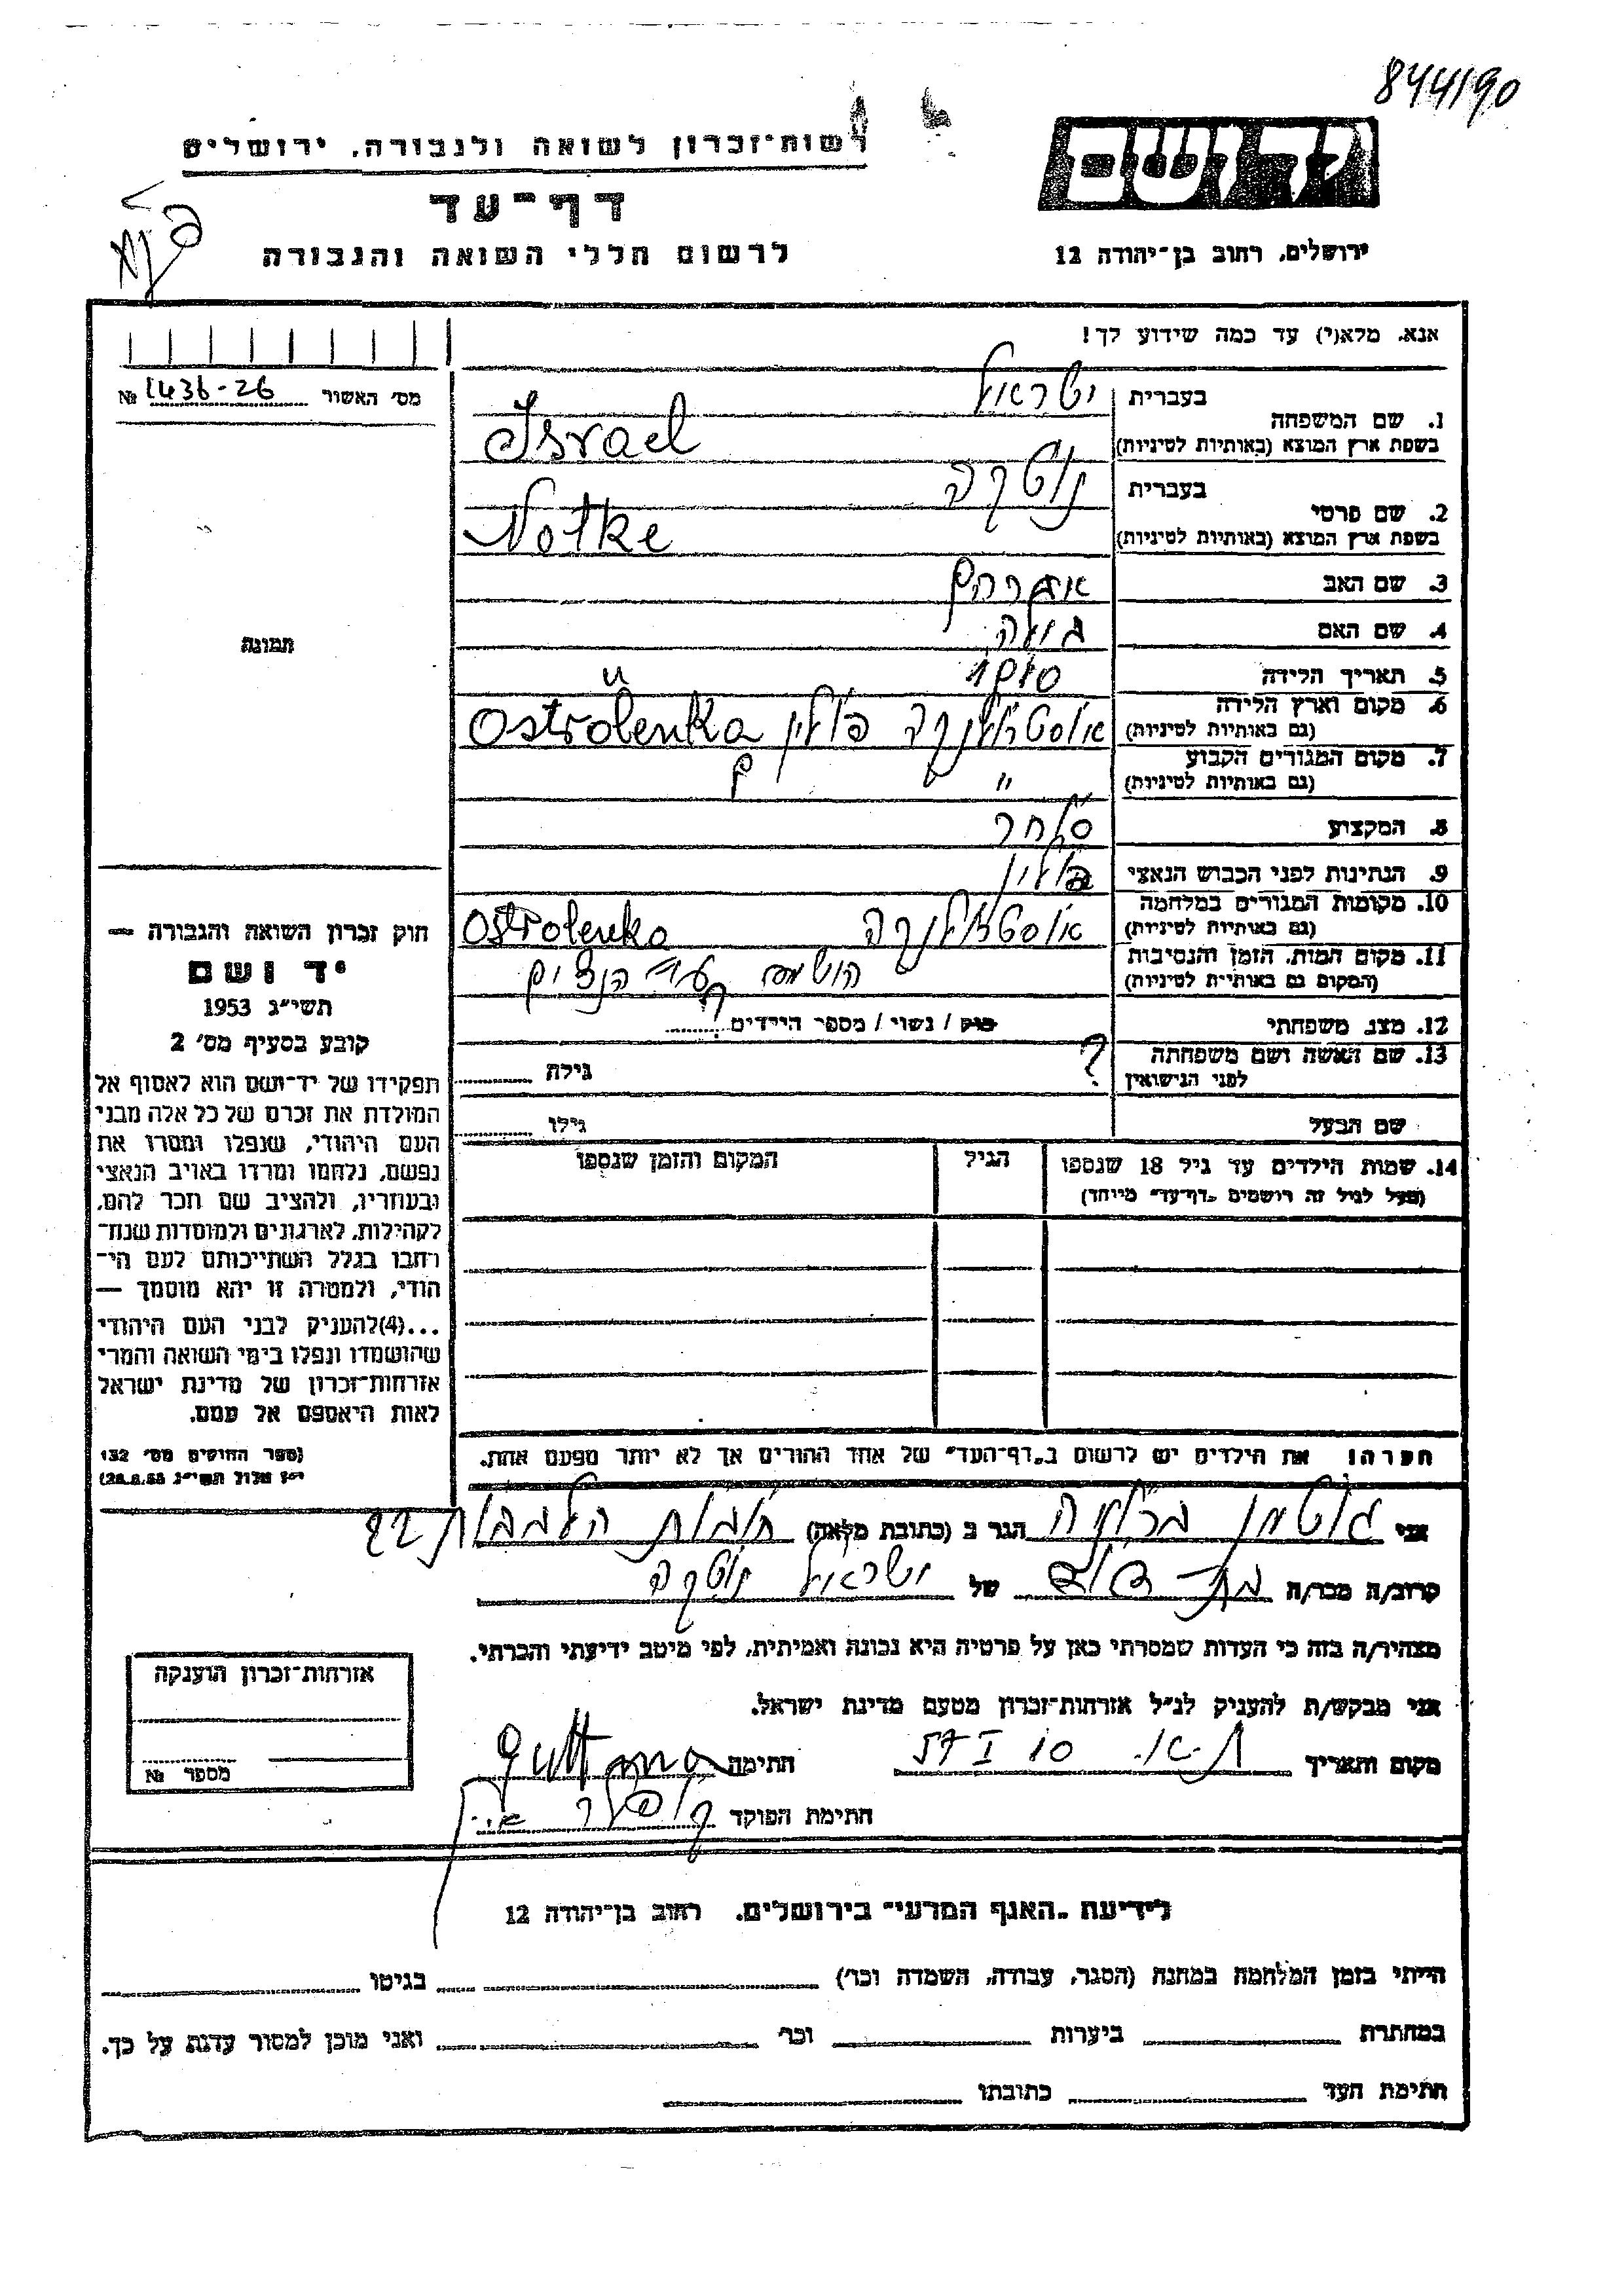 844/90
רשות־זכרון לשואה ולגבורה, ירושלים
דף־עד
לרשום חללי השואה והגבורה
ירושלים, רחוב בן־יהודה 12
אנא, מלא(י) עד כמה שידוע לך!
מס׳ האשור № 1436-26
1. שם המשפחה
בעברית ישראל
בשפת ארץ המוצא (באותיות לטיניות) Israel
2. שם פרטי
בעברית נוטקה
בשפת ארץ המוצא (באותיות לטיניות) Notke
3. שם האב אברהם
4. שם האם
5. תאריך הלידה 1910
6. מקום וארץ הלידה
(גם באותיות לטיניות) אוסטרולנקה פולין Ostrolenka
7. מקום המגורים הקבוע
(גם באותיות לטיניות) "
8. המקצוע סוחר
9. הנתינות לפני הכבוש הנאצי פולין
10. מקומות המגורים במלחמה
(גם באותיות לטיניות) אוסטרולנקה Ostrolenka
11. מקום המות, הזמן והנסיבות
(המקום גם באותיות לטיניות) הושמד ע״י הנצים
12. מצב משפחתי רווק / נשוי / מספר הילדים ?
13. שם האשה ושם משפחתה
לפני הנישואין ? גילה
שם הבעל גילו
14. שמות הילדים עד גיל 18 שנספו
(מעל לגיל זה רושמים „דף־עד” מיוחד)
הגיל
המקום והזמן שנספו
תמונה
חוק זכרון השואה והגבורה —
יד ושם
תשי״ג 1953
קובע בסעיף מס׳ 2
תפקידו של יד־ושם הוא לאסוף אל
המולדת את זכרם של כל אלה מבני
העם היהודי, שנפלו ומסרו את
נפשם, נלחמו ומרדו באויב הנאצי
ובעוזריו, ולהציב שם וזכר להם,
לקהילות, לארגונים ולמוסדות שנח־
רבו בגלל השתייכותם לעם הי־
הודי, ולמטרה זו יהא מוסמך —
...(4)להעניק לבני העם היהודי
שהושמדו ונפלו בימי השואה והמרי
אזרחות־זכרון של מדינת ישראל
לאות היאספם אל עמם.
(ספר החוקים מס׳ 132
י״ז אלול תשי״ג 28.8.53)
הערה! את הילדים יש לרשום ב„דף־העד” של אחד ההורים אך לא יותר מפעם אחת.
אני גוטמן ברונה הגר ב (כתובת מלאה) חובות הלבבות 22
קרוב/ה מכר/ה בת־דוד של ישראל נוטקה
מצהיר/ה בזה כי העדות שמסרתי כאן על פרטיה היא נכונה ואמיתית, לפי מיטב ידיעתי והכרתי.
אני מבקש/ת להעניק לנ״ל אזרחות־זכרון מטעם מדינת ישראל.
מקום ותאריך ת״א. 10 I 57 חתימה Guttman
חתימת הפוקד
אזרחות־זכרון הוענקה
מספר №
לידיעת „האגף המדעי” בירושלים, רחוב בן־יהודה 12
הייתי בזמן המלחמה במחנה (הסגר, עבודה, השמדה וכו׳) בגיטו
במחתרת ביערות וכו׳ ואני מוכן למסור עדות על כך.
חתימת העד כתובתו